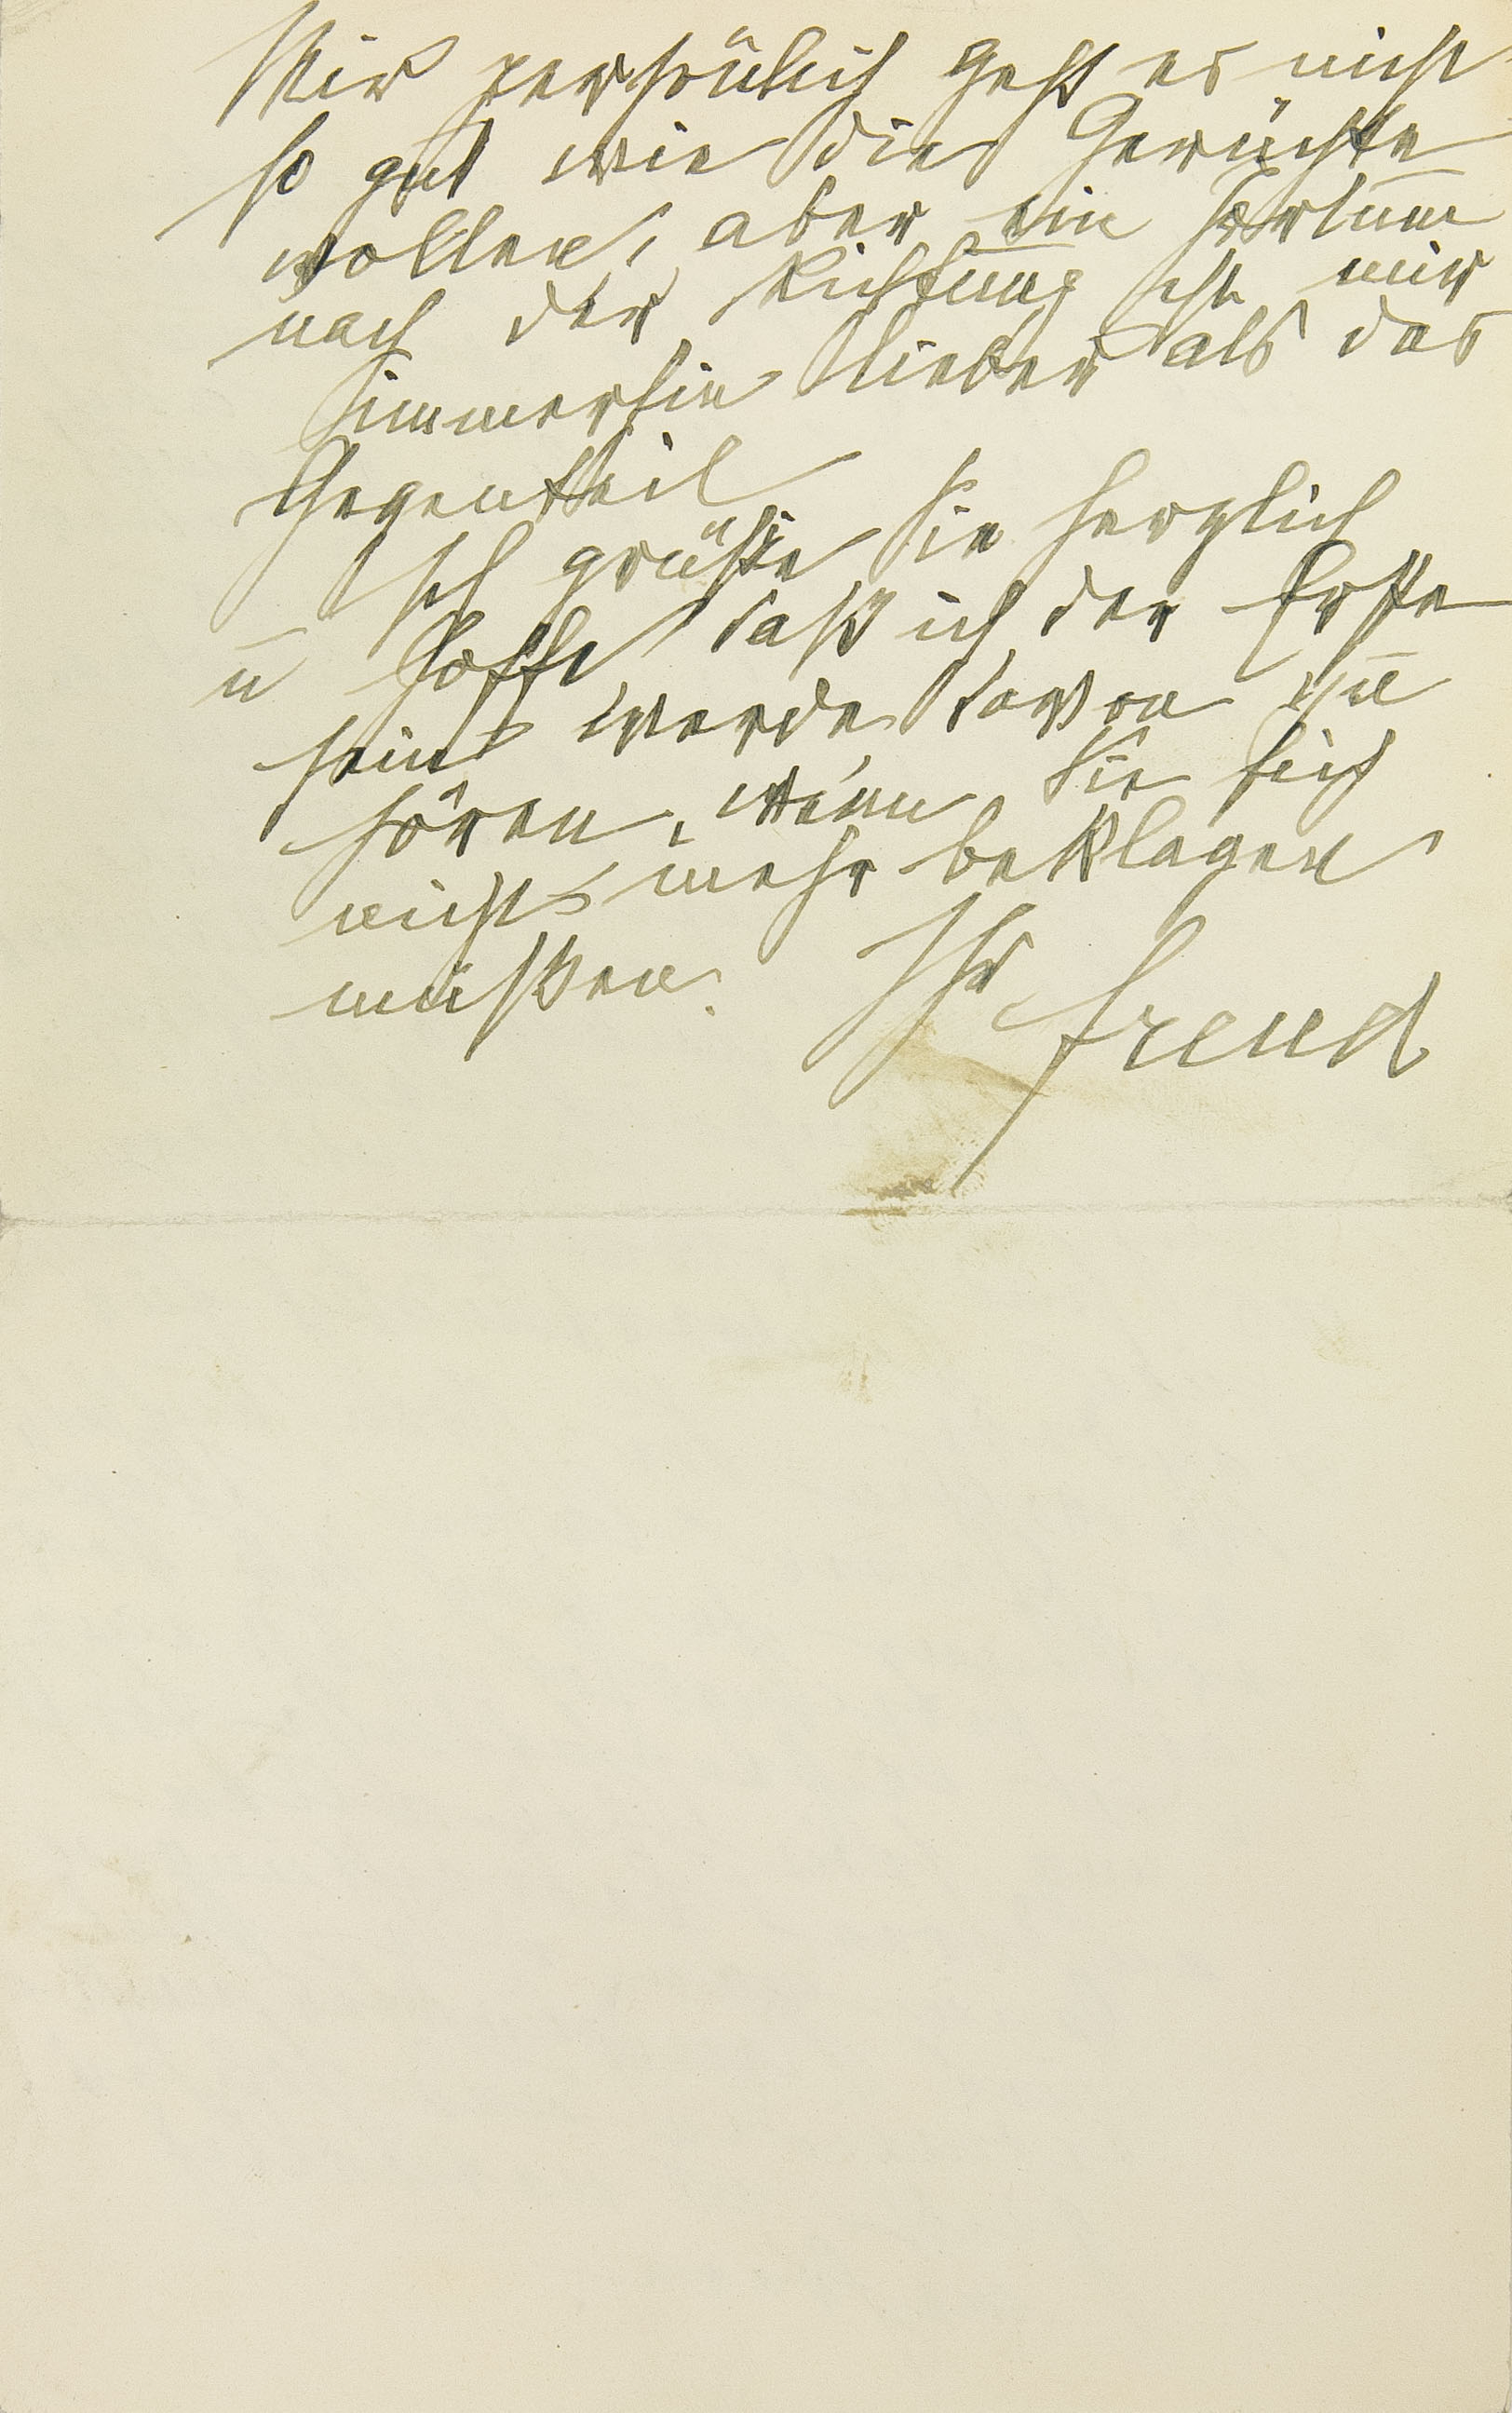 Mir persönlich geht es nicht
so gut wie die Gerüchte
wollen, aber ein Irrtum
nach der Richtung ist mir
immerhin lieber als das
Gegenteil
Ich grüße Sie herzlich
u hoffe daß ich der Erste
sein werde davon zu
hören, wenn Sie sich
nicht mehr beklagen
müßen.
Ihr Freud